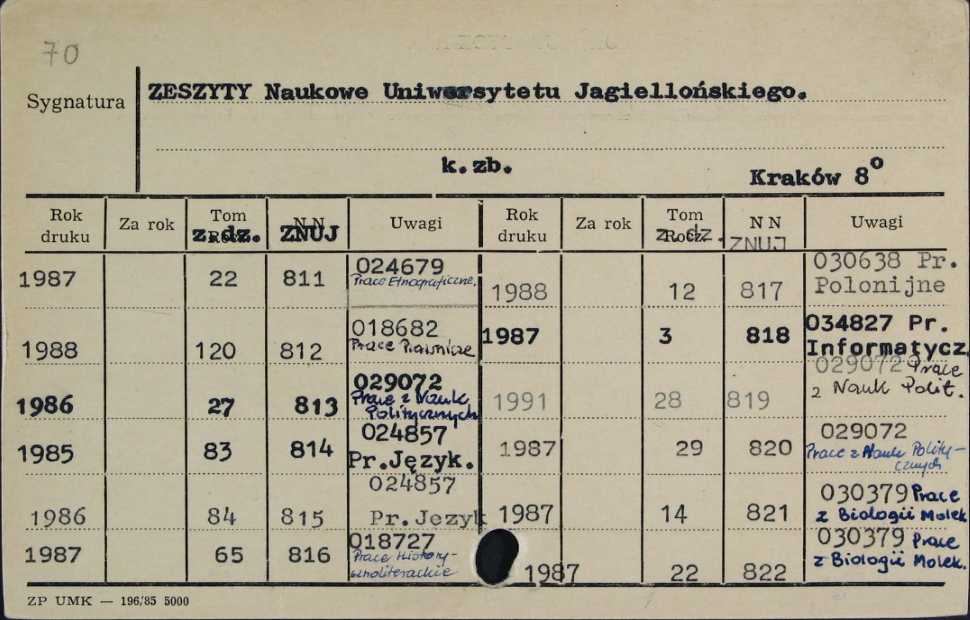 70
Sygnatura
ZESZYTY Naukowe Uniwersytetu Jagiellońskiego.
k.zb.
Kraków 8o
Rok druku Za rok Tom Rocz. z. dz. N N ZNUJ Uwagi Rok druku Za rok Tom Rocz. z. dz. N N ZNUJ Uwagi
1987 22 811 024679 Prace Etnograficzne.
1988 120 812 018682 Prace Prawnicze
1986 27 813 029072 Prace z Nauk Politycznych
1985 83 814 024857 Pr.Język.
1986 84 815 024857 Pr.Jezyk
1987 65 816 018727 Prace Historycznoliterackie
1988 12 817 030638 Pr. Polonijne
1987 3 818 034827 Pr. Informatycz
1991 28 819 029072 Prace z Nauk Polit.
1987 29 820 029072 Prace z Nauk Politycznych
1987 14 821 030379 Prace z Biologii Molek
1987 22 822 030379 Prace z Biologii Molek.
ZP UMK — 196/85 5000